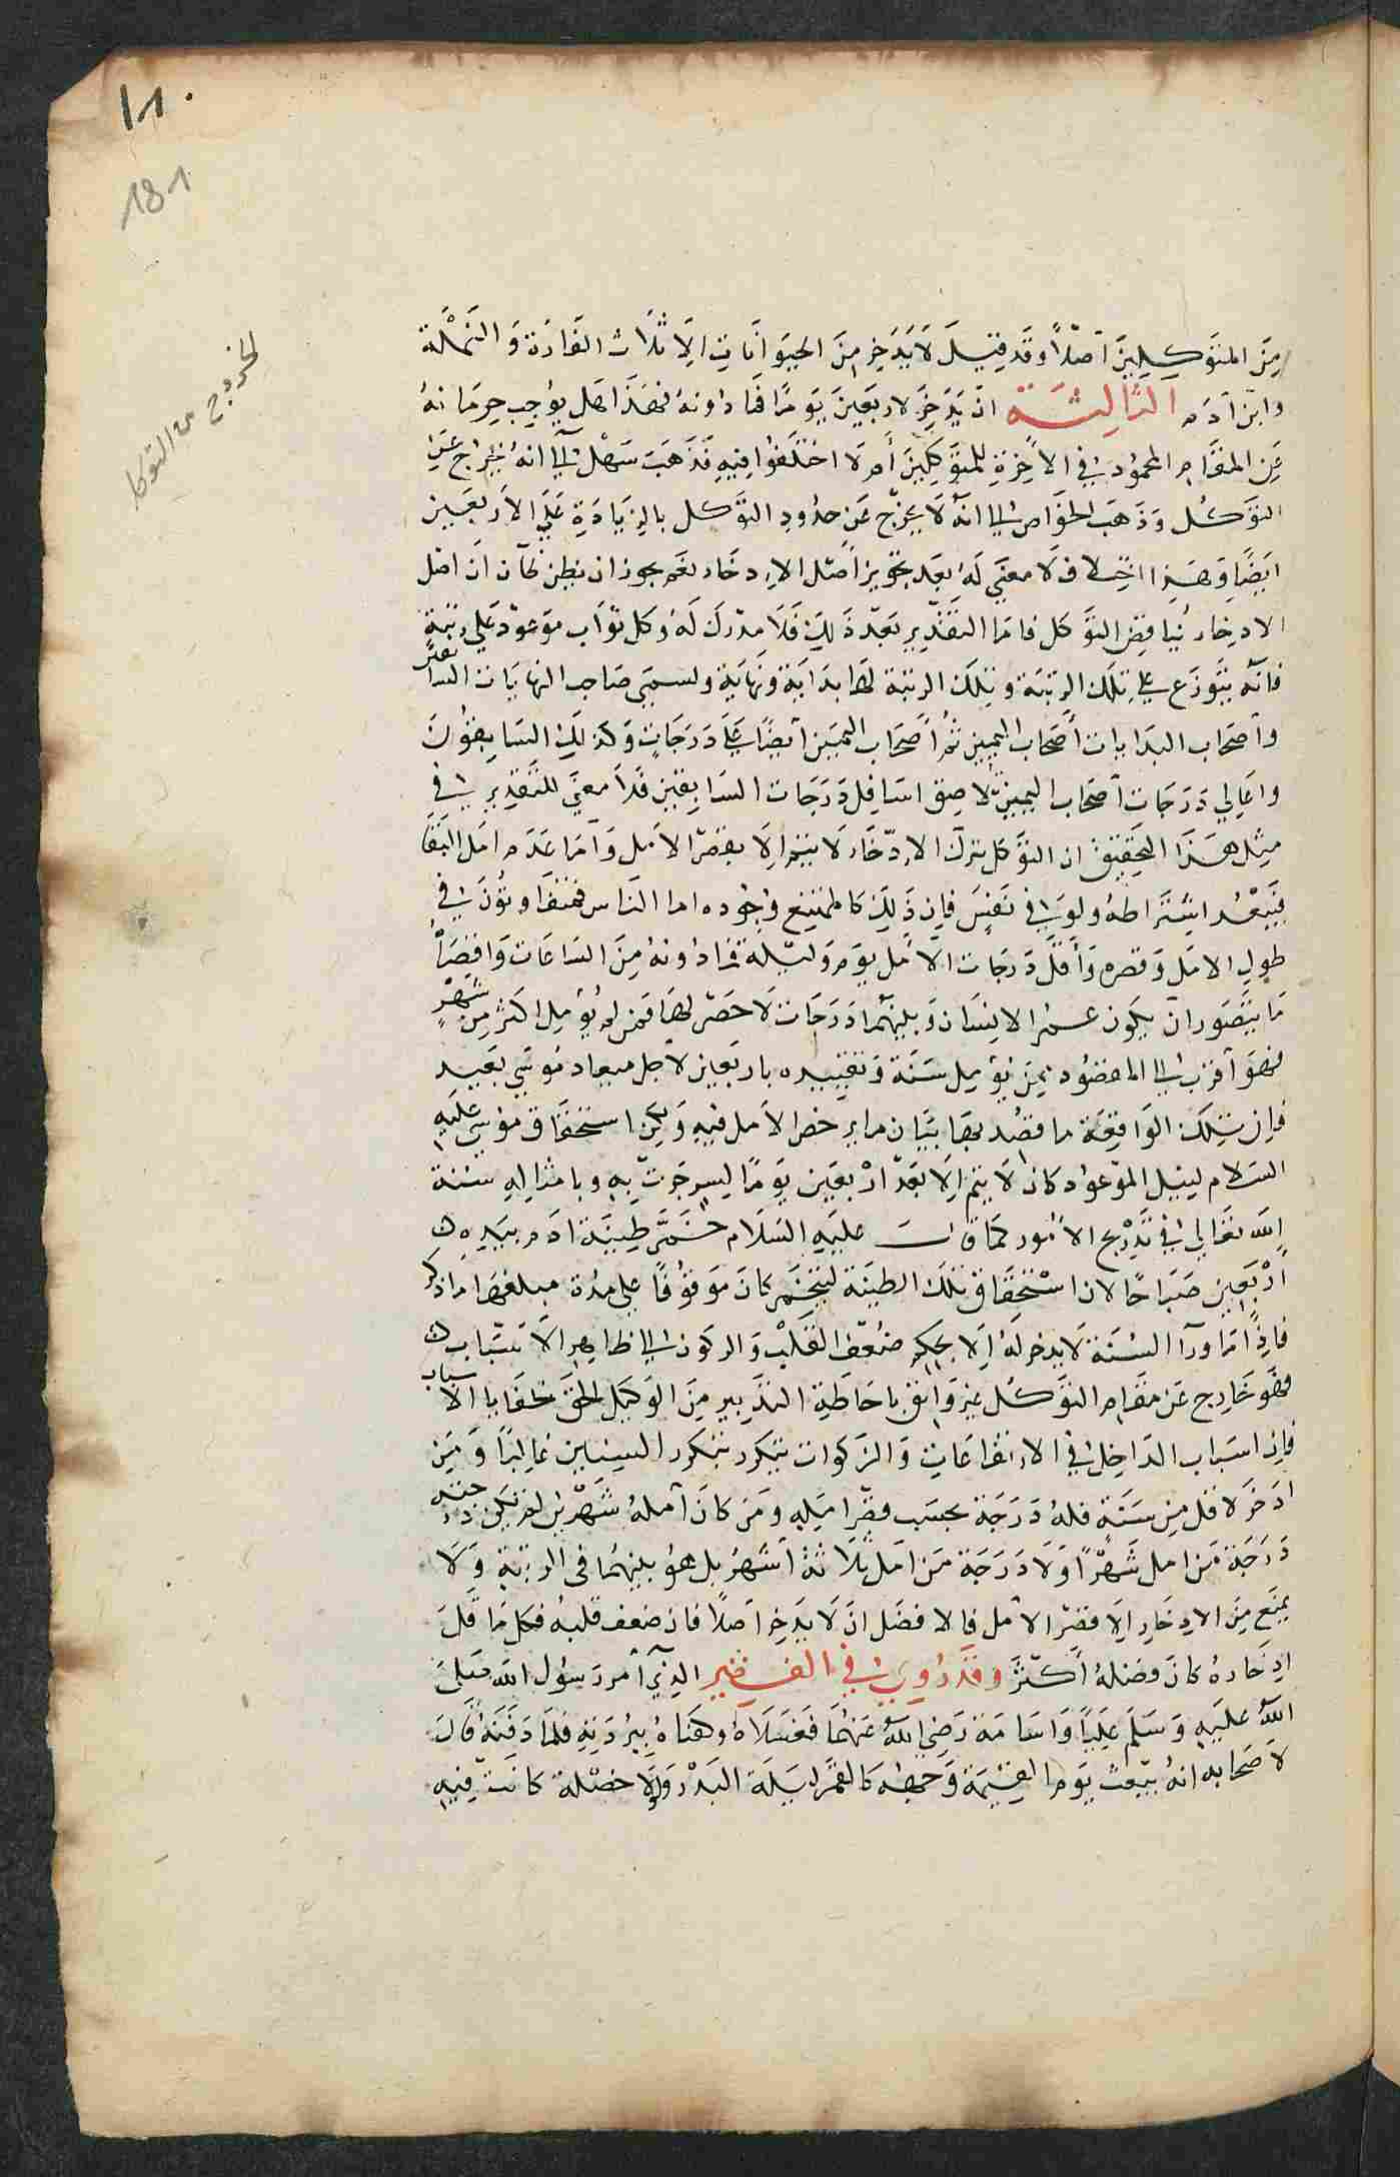 181
الخروج من التوكل
مِنَ المتَوكلِينَ أصلاً وقد قيلَ لَا يَدَخِر مِنَ الحيَوانَاتِ الَا ثلَاث الفَارَة وَالنَمْلَة
وابن آدَم الثالِثَة ان يَدَخِرَ لاربَعينَ يَومًا فما دُونهُ فهَذا هَل يُوجِب حِرمَانهُ
عَنِ المقَام المحمُود في الاخِرَةِ للمتَوَكِلِينَ أم لَا اختلَفُوا فيهِ فَذَهَبَ سَهْل الي انهُ يخْرُج عَنِ
التوَكُل وَذَهَبَ الخوَاص الي انهُ لَا يخرُج عَن حدُودِ التوَكل بالزِيَادَةِ عَلَي الأربَعين
ايضًا وَهَذا اختِلاف لَا معنَي لَهُ بعَد تجويز أصْل الادِخَار نعَم يجوز ان يظن ظان ان اصْل
الادخَار يُنَاقِض التوَكل فامَا التقدِير بَعْد ذَلِكَ فلَا مدرَك لَهُ وكل ثوَاب مَوعود عَلَي رتبَة
فانهُ يتَوزَع علي تلكَ الرتبَة وتلكَ الرتبَة لهَا بدَايَة ونهايَة ويسمَي صَاحب النهايَات السَابقين
وأصحَاب البدَايات أصحَاب اليمين ثم أصحَاب اليمين ايضًا علي دَرَجَاتٍ وَكذلِكَ السَابقُونَ
واعَالي دَرَجَات أصحَاب اليمين تلاصِق اسَافِل دَرَجَات السَابِقين فلَا معنَي للتقدِير في
مِثْل هَذَا التحقيق ان التوَكل بترك الادّخَار لَا يتم الَا بقصْر الامَل وَأمَا عَدَم امَل البقَا
فيبْعُد اشترَاطهُ ولو في نفسٍ فان ذَلِكَ كالممتنِع وجُوده اما النَاس فمتفَاوتُونَ في
طولِ الامَل وَقصره وَأقلّ دَرجَات الامَل يَوم وَليْلَة فمَا دُونهُ مِنَ السَاعَات وَاقصَاهُ
مَا يتَصَور ان يَكون عمر الانسَان وَبينهُمَا دَرَجَات لَا حَصْر لهَا فمَن لم يُؤمِل اكثر مِن شَهْرٍ
فهوَ أقرَب الي المقصُود ممن يُؤمِل سَنَة وَتقييده باربَعين لاجل ميعاد مُوسَي بَعيد
فان تِلكَ الوَاقِعَة ما قصُد بهَا بيَان ما رخص الامَل فيهِ وَلكن استحقَاق مُوسَي عليهِ
السلَام لنيل الموعُود كان لَا يتم الَا بَعْد ارْبَعين يَومًا لسر جَرت بهِ وبامثالِهِ سُنة
الله تعَالي في تدْريج الامُور كمَا قالَ عليَهِ السَلَام خَمَّرَ طِينَة ادَم بيَدِهِ
أرْبَعين صَبَاحًا لان اسْتحقَاق تلكَ الطينَة لتخمر كانَ مَوقوُفًا علي مدُة مبلغهَا ما ذكر
فاذًا مَا ورَآ السَنَة لَا يدخر لَهُ الَا بحكم ضعْف القَلْب وَالركون الي ظاهِر الاسْبَاب
فهو خَارِج عَن مقَام التوَكُل غير وَاثق باحَاطَة التدبير مِنَ الوَكيل الحق بخفَايا الاسباب
فان اسبَاب الدَاخِل في الارتفَاعَات وَالزكوات يتكرر بتكرر السِنين غَالبًا وَمَن
ادَخَرَ لاقل مِن سَنَة فلهُ دَرَجَة بحسَب قِصَر امَلِه وَمَن كانَ املهُ شهْرين لم تكن درجته
دَرَجَة مَن امل شَهْرًا وَلَا دَرَجَة مَن امَل ثلَاثَة اشهُر بل هوَ بينهُمَا في الرتبة وَلَا
يمنَع مِنَ الادِخَار الَا قصَر الامَل فالافضَل ان لَا يدَخِر اصلًا فان ضعف قلبهُ فكل مَا قَلَ
ادِخَارهُ كانَ فضلهُ أكثرَ وقد رُوي في الفقير الذِي أمر رَسُول الله صَلىَ
اللهُ عليَهِ وَسَلَم عَليًا وَاسَامَة رَضِيَ اللهُ عَنهُمَا فغَسَلَاهُ وكفنَاهُ ببُردَتِه فلمَا دَفَنَهُ قَالَ
لاصحَابه انهُ يبعَث يَوم القيمَة وَوجههُ كالقمَر ليلَة البَدْر وَلولَا خصْلة كانَت فيهِ